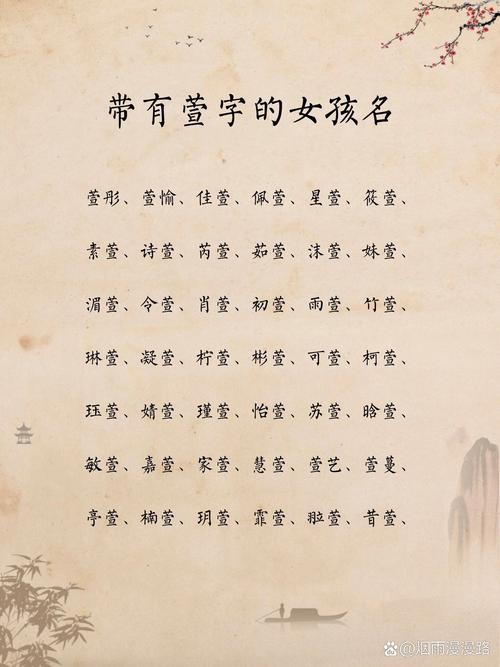 带有萱字的女孩名
萱彤、萱愉、佳萱、佩萱、星萱、筱萱、
素萱、诗萱、芮萱、茹萱、沫萱、妹萱、
湄萱、令萱、肖萱、初萱、雨萱、竹萱、
琳萱、凝萱、柠萱、彬萱、可萱、柯萱、
珏萱、婧萱、瑾萱、怡萱、苏萱、晗萱、
敏萱、嘉萱、家萱、慧萱、萱艺、萱蔓、
亭萱、楠萱、玥萱、霏萱、翋萱、昔萱、
@烟雨漫漫路